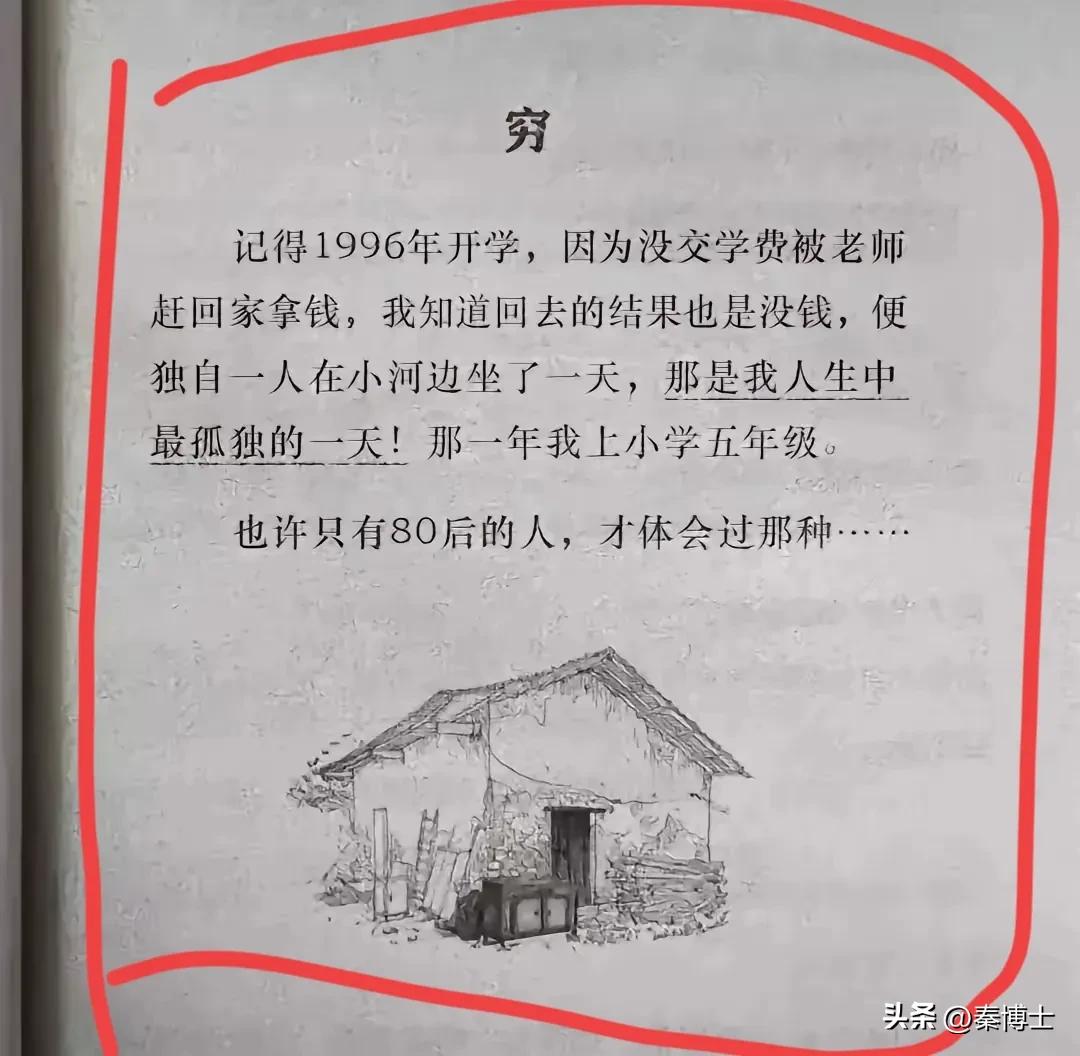 穷
记得1996年开学，因为没交学费被老师
赶回家拿钱，我知道回去的结果也是没钱，便
独自一人在小河边坐了一天，那是我人生中
最孤独的一天！那一年我上小学五年级。
也许只有80后的人，才体会过那种……
头条 @秦博士